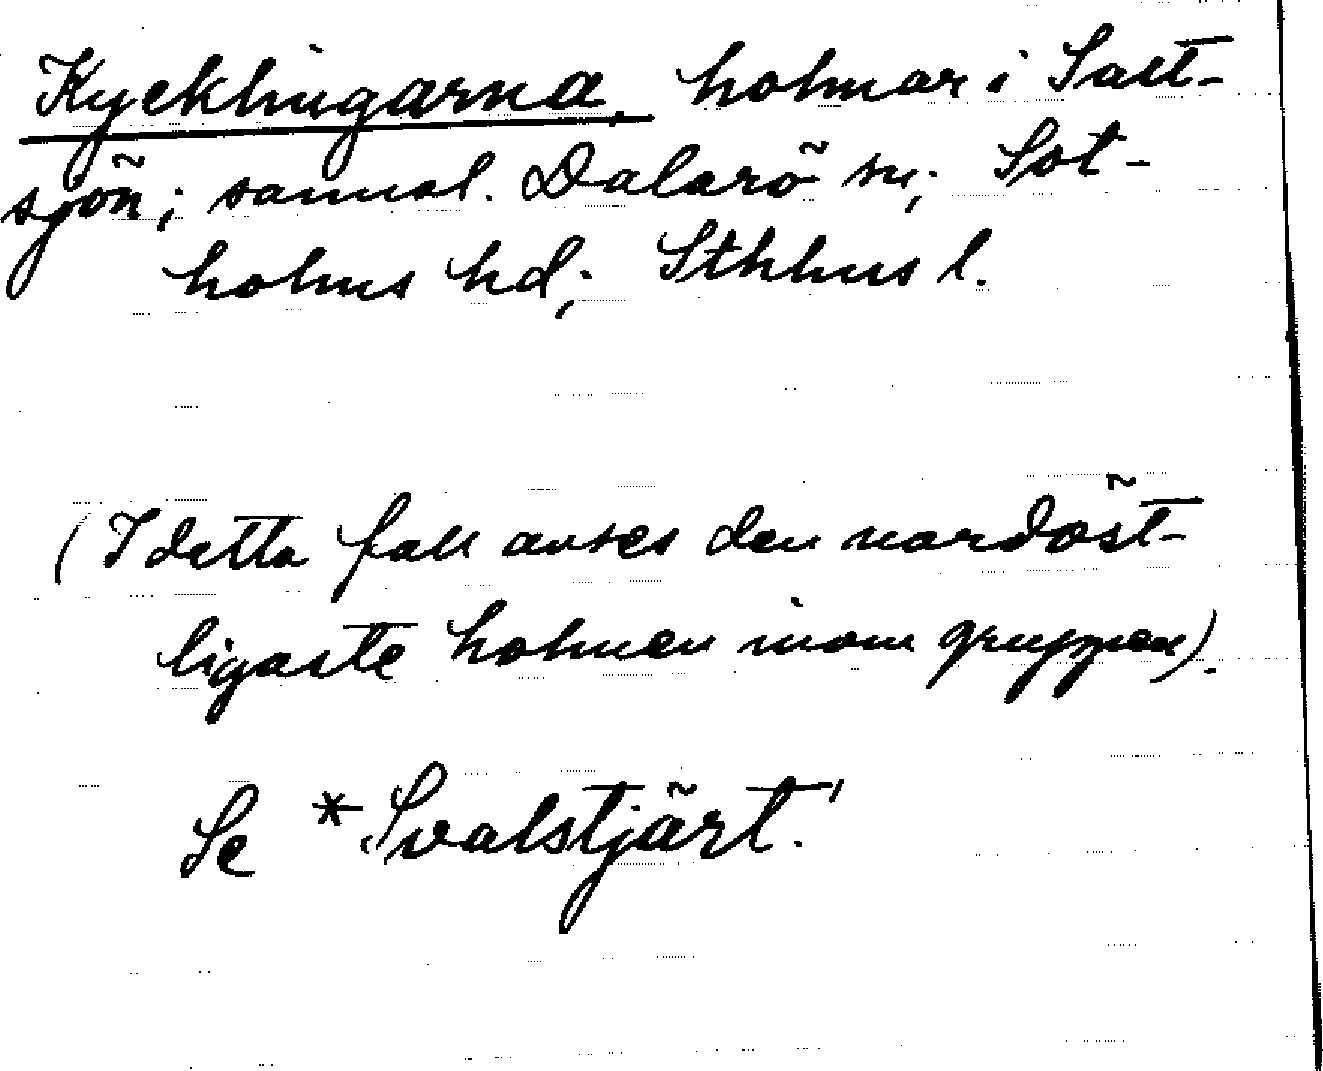 Kycklingarna, holmar i Salt-
sjön; samml. Dalarö sn; Sot-
holms hd; Sthlms l.
(I detta fall avses den nordöst-
ligaste holmen inom gruppen).
Se *Svalstjärt.'